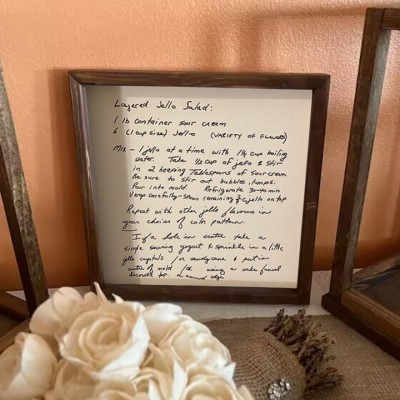 Layered Jello Salad:
1 lb container sour cream
6 (1 cup size) Jell-o (VARIETY OF FLAVORS)
MIX - 1 jello at a time with 1¼ cup boiling
water. Take ½ cup of jello & stir
in 2 heaping Tablespoons of sour cream
Be sure to stir out bubbles, lumps.
Pour into mold. Refrigerate 30-40 min
Very carefully-spoon remaining ¾ c jello on top
Repeat with other jello flavors in
your choice of color pattern.
If a hole in center take a
single serving yogurt & sprinkle in a little
jello crystals / or candycane & put in
center of mold / using a cake funnel
around edge